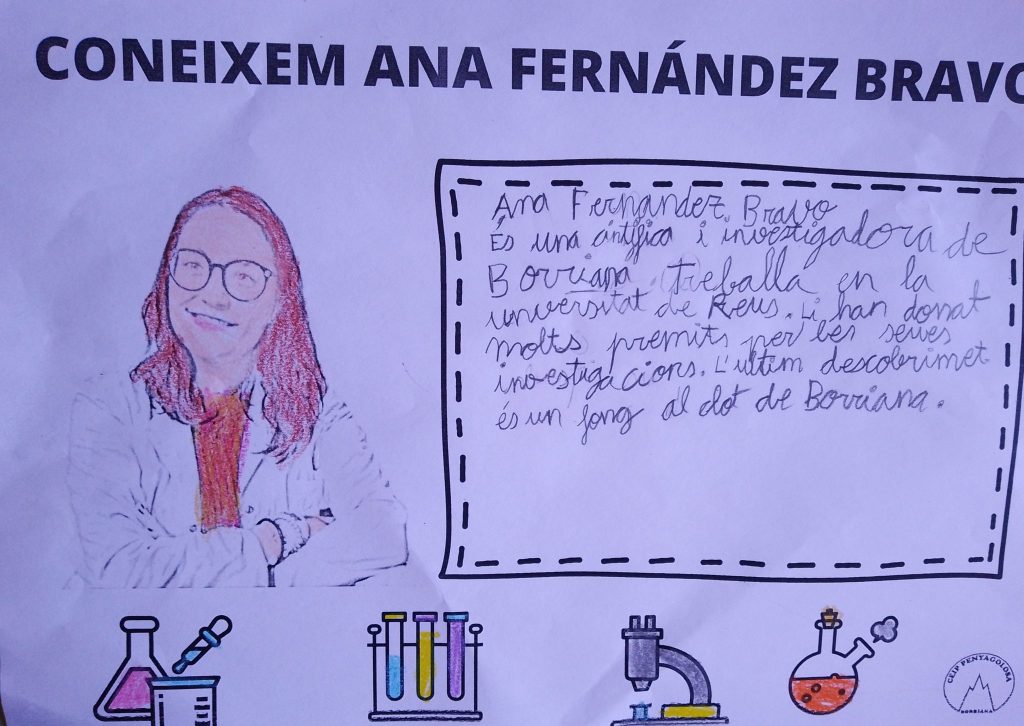 CONEIXEM ANA FERNÁNDEZ BRAVO
Ana Fernandez Bravo
És una cintífica i investigadora de
Borriana. Treballa en la
universitat de Reus. Li han donat
molts premits per les seues
investigacions. L'ultim descobrimet
és un fong al clot de Borriana.
CEIP PENYAGOLOSA
BORRIANA